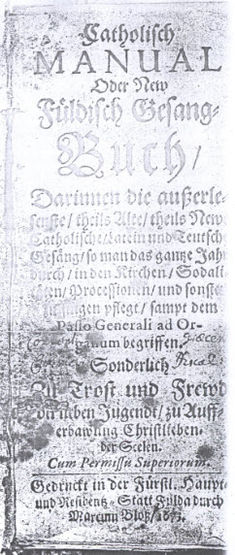 Catholisch
MANUAL
Oder New
Füldisch Gesang-
Buch/
Darinnen die außerle-
senste/ theils Alte/ theils New
Catholische/ Latein und Teutsch
Gesäng/ so man das gantze Jahr
durch/ in den Kirchen/ Sodali
Processionen/ und sonsten
pflegt/ sampt dem
Passio Generali ad Or-
ganum begriffen.
Sonderlich
Zu Trost und Frewd
der lieben Jugendt/ zu Auff-
erbawung Christlieben-
der Seelen.
Cum Permissu Superiorum.
Gedruckt in der Fürstl. Haupt-
und Residentz-Statt Fulda durch